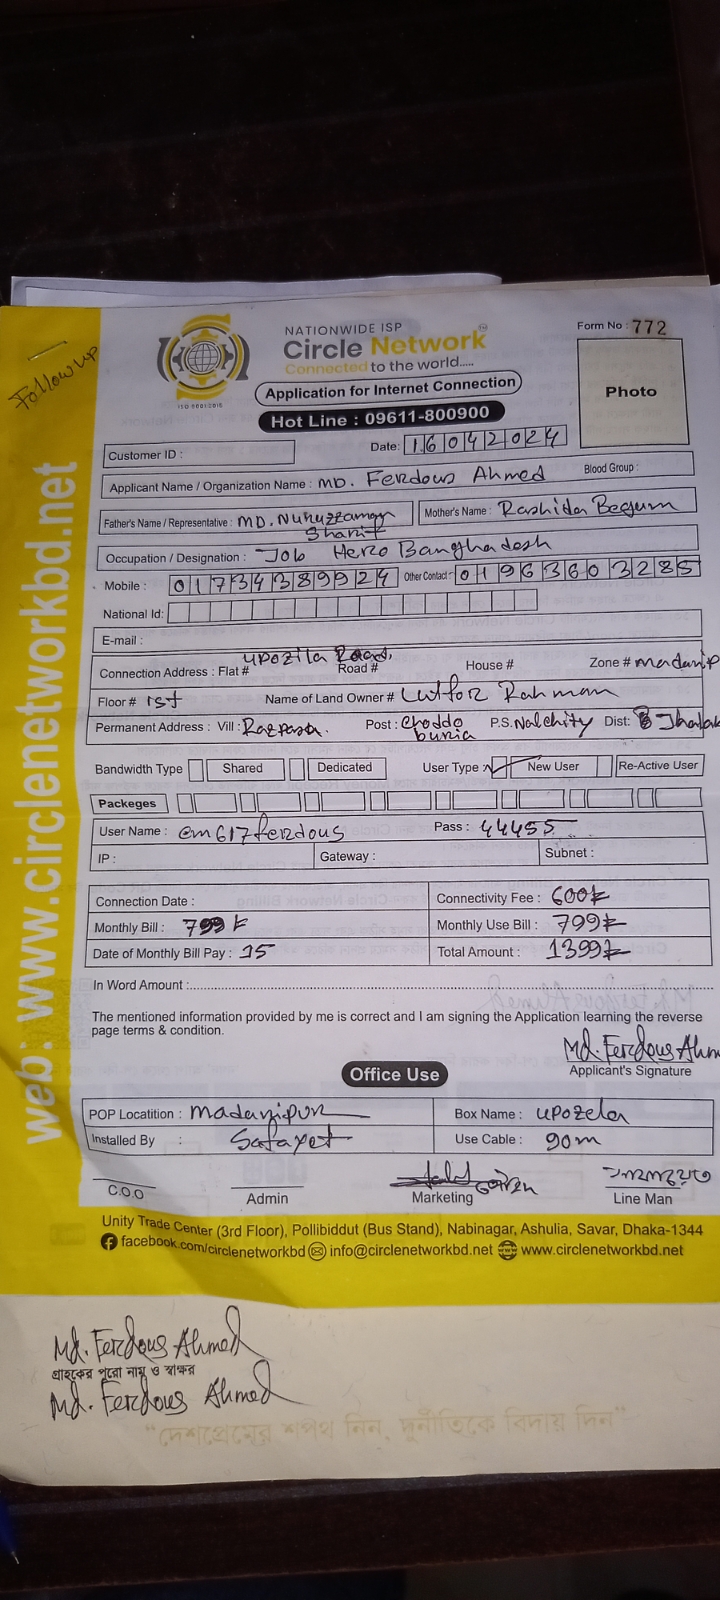 Follow up
NATIONWIDE ISP
Circle Network
Connected to the world.....
Form No : 772
Application for Internet Connection
Photo
ISO 9001:2015
Hot Line : 09611-800900
Customer ID :
Date: 16042024
Applicant Name / Organization Name : MD. Ferdous Ahmed Blood Group :
Father's Name / Representative : MD. Nuruzzaman Sharif Mother's Name : Rashida Begum
Occupation / Designation : Job Hero Bangladesh
Mobile : 01734389924 Other Contact : 01963603285
National Id:
E-mail :
Connection Address : Flat # upozila Road, Road # House # Zone # madarip
Floor # 1st Name of Land Owner # Lutfor Rahman
Permanent Address : Vill : Post : Choddo buria P.S. Nalchity Dist: Jhalak
Bandwidth Type Shared Dedicated User Type : New User Re-Active User
Packeges
User Name : cm617ferdous Pass : 44455
IP : Gateway : Subnet :
Connection Date : Connectivity Fee : 600৳
Monthly Bill : 799৳ Monthly Use Bill : 799৳
Date of Monthly Bill Pay : 15 Total Amount : 1399৳
In Word Amount :
The mentioned information provided by me is correct and I am signing the Application learning the reverse
page terms & condition.
Md. Ferdous Ahm
Applicant's Signature
Office Use
POP Locatition : Madaripur Box Name : upozela
Installed By : Safayet Use Cable : 90m
C.O.O Admin Marketing Line Man
Unity Trade Center (3rd Floor), Pollibiddut (Bus Stand), Nabinagar, Ashulia, Savar, Dhaka-1344
facebook.com/circlenetworkbd info@circlenetworkbd.net www.circlenetworkbd.net
web: www.circlenetworkbd.net
Md. Ferdous Ahmed
গ্রাহকের পুরো নাম ও স্বাক্ষর
Md. Ferdous Ahmed
"দেশপ্রেমের শপথ নিন, দুর্নীতিকে বিদায় দিন"